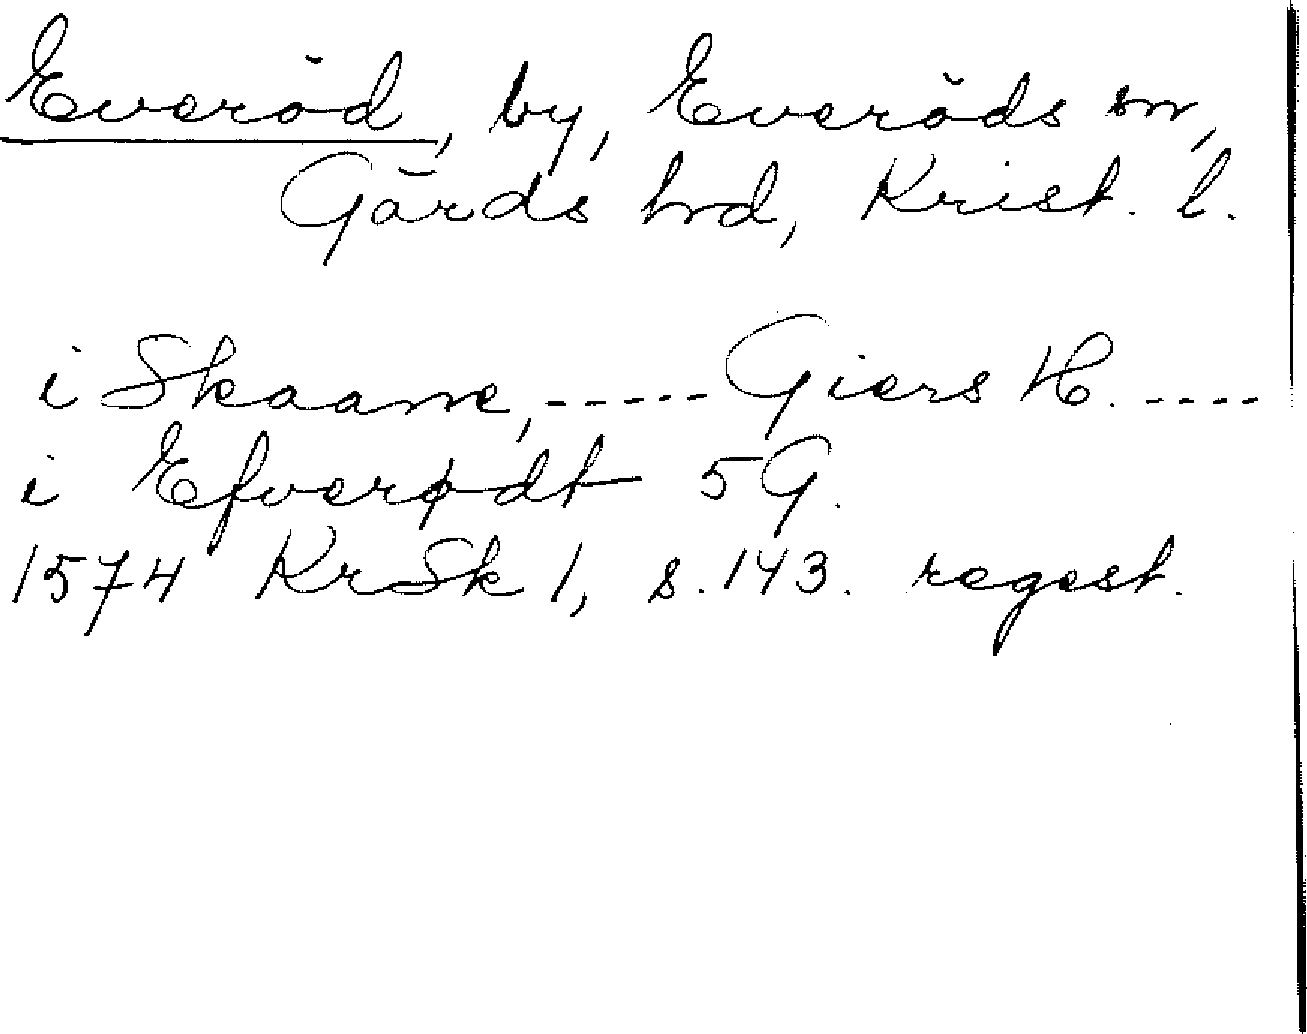 Everöd, by, Everöds sn,
Gärds hrd, Krist. l.
i Skaane, ----- Giers H. ----
i Efverødt 5 G.
1574 KrSk 1, s. 143. regest.